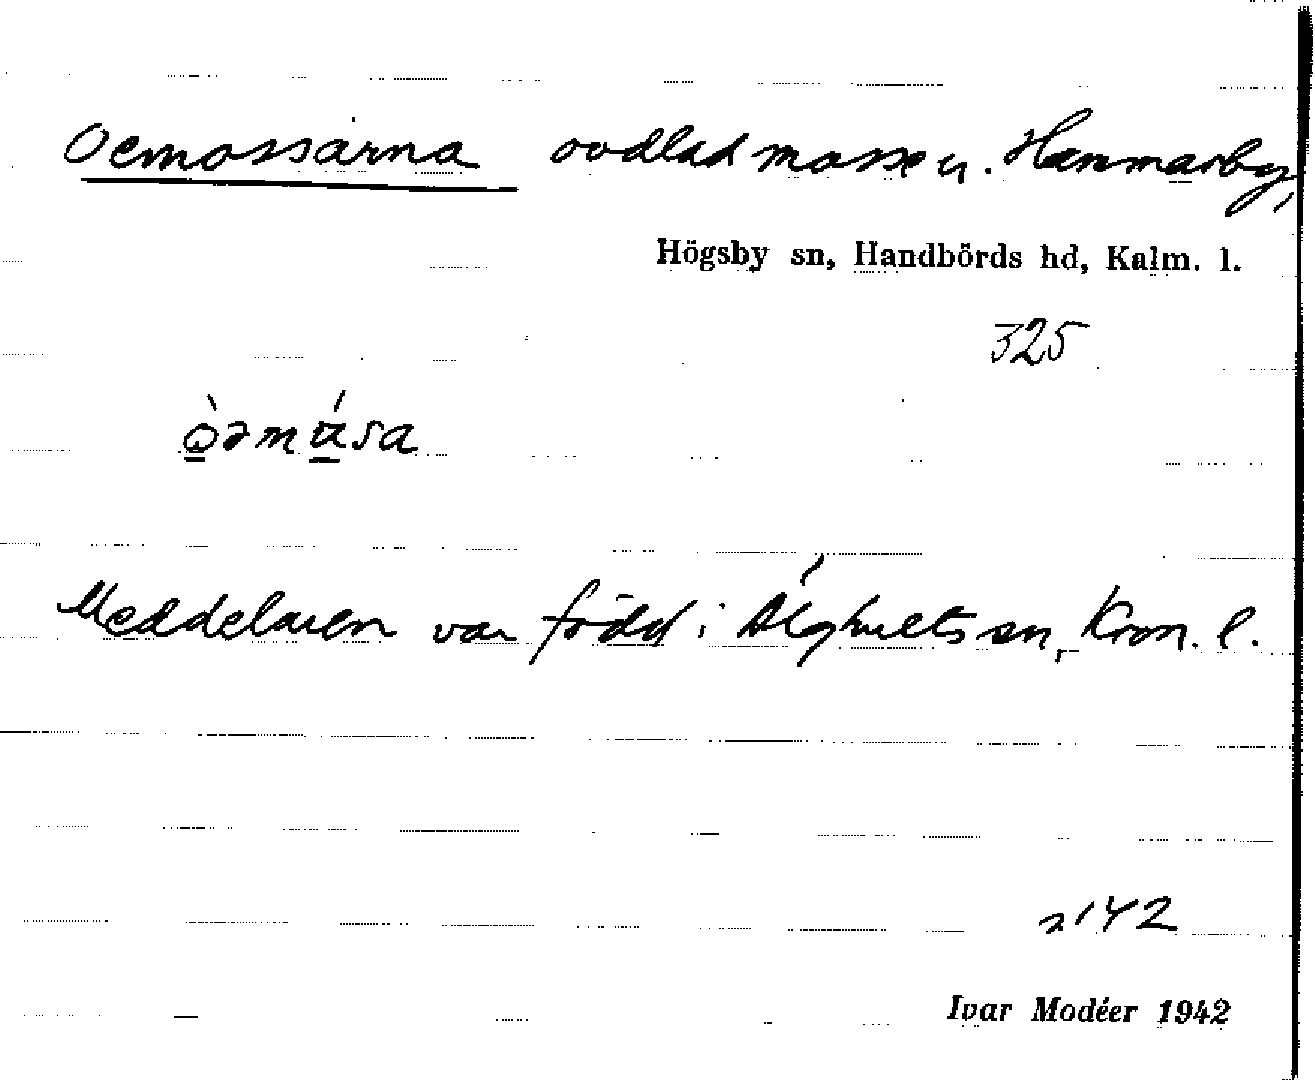 Oemossarna oodlad mosse u. Hammarby,
Högsby sn, Handbörds hd, Kalm. l.
325
Meddelaren var född i Älghults sn, Kron. l.
142
Ivar Modéer 1942